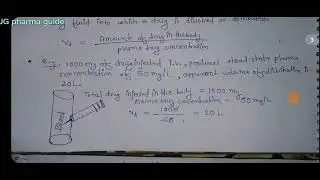 JG pharma guide
fluid into which a drug is dissolved or distributed
Vd = Amount of drug in the body
plasma drug concentration
3
1000 mg of drug injected I.V. produces steady-state plasma
concentration of 50mg/L, apparent volume of distribution is
20L.
Total drug injected in the body = 1000 mg
plasma drug concentration = 50mg/L
Vd = 1000
50
= 20L